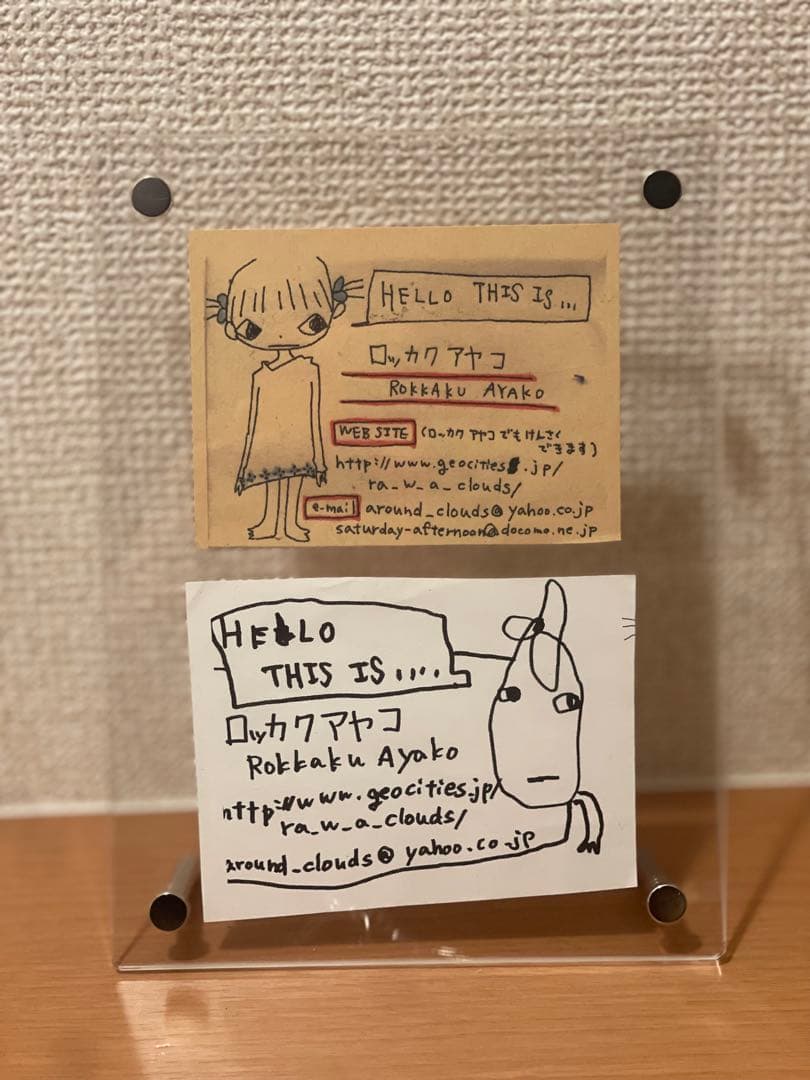 HELLO THIS IS...
ロッカクアヤコ
ROKKAKU AYAKO
WEB SITE (ロッカクアヤコでもけんさく
できます)
http://www.geocities.jp/
ra_w_a_clouds/
e-mail around_clouds@yahoo.co.jp
saturday-afternoon@docomo.ne.jp
HELLO
THIS IS....
ロッカクアヤコ
Rokkaku Ayako
http://www.geocities.jp/
ra_w_a_clouds/
around_clouds@yahoo.co.jp